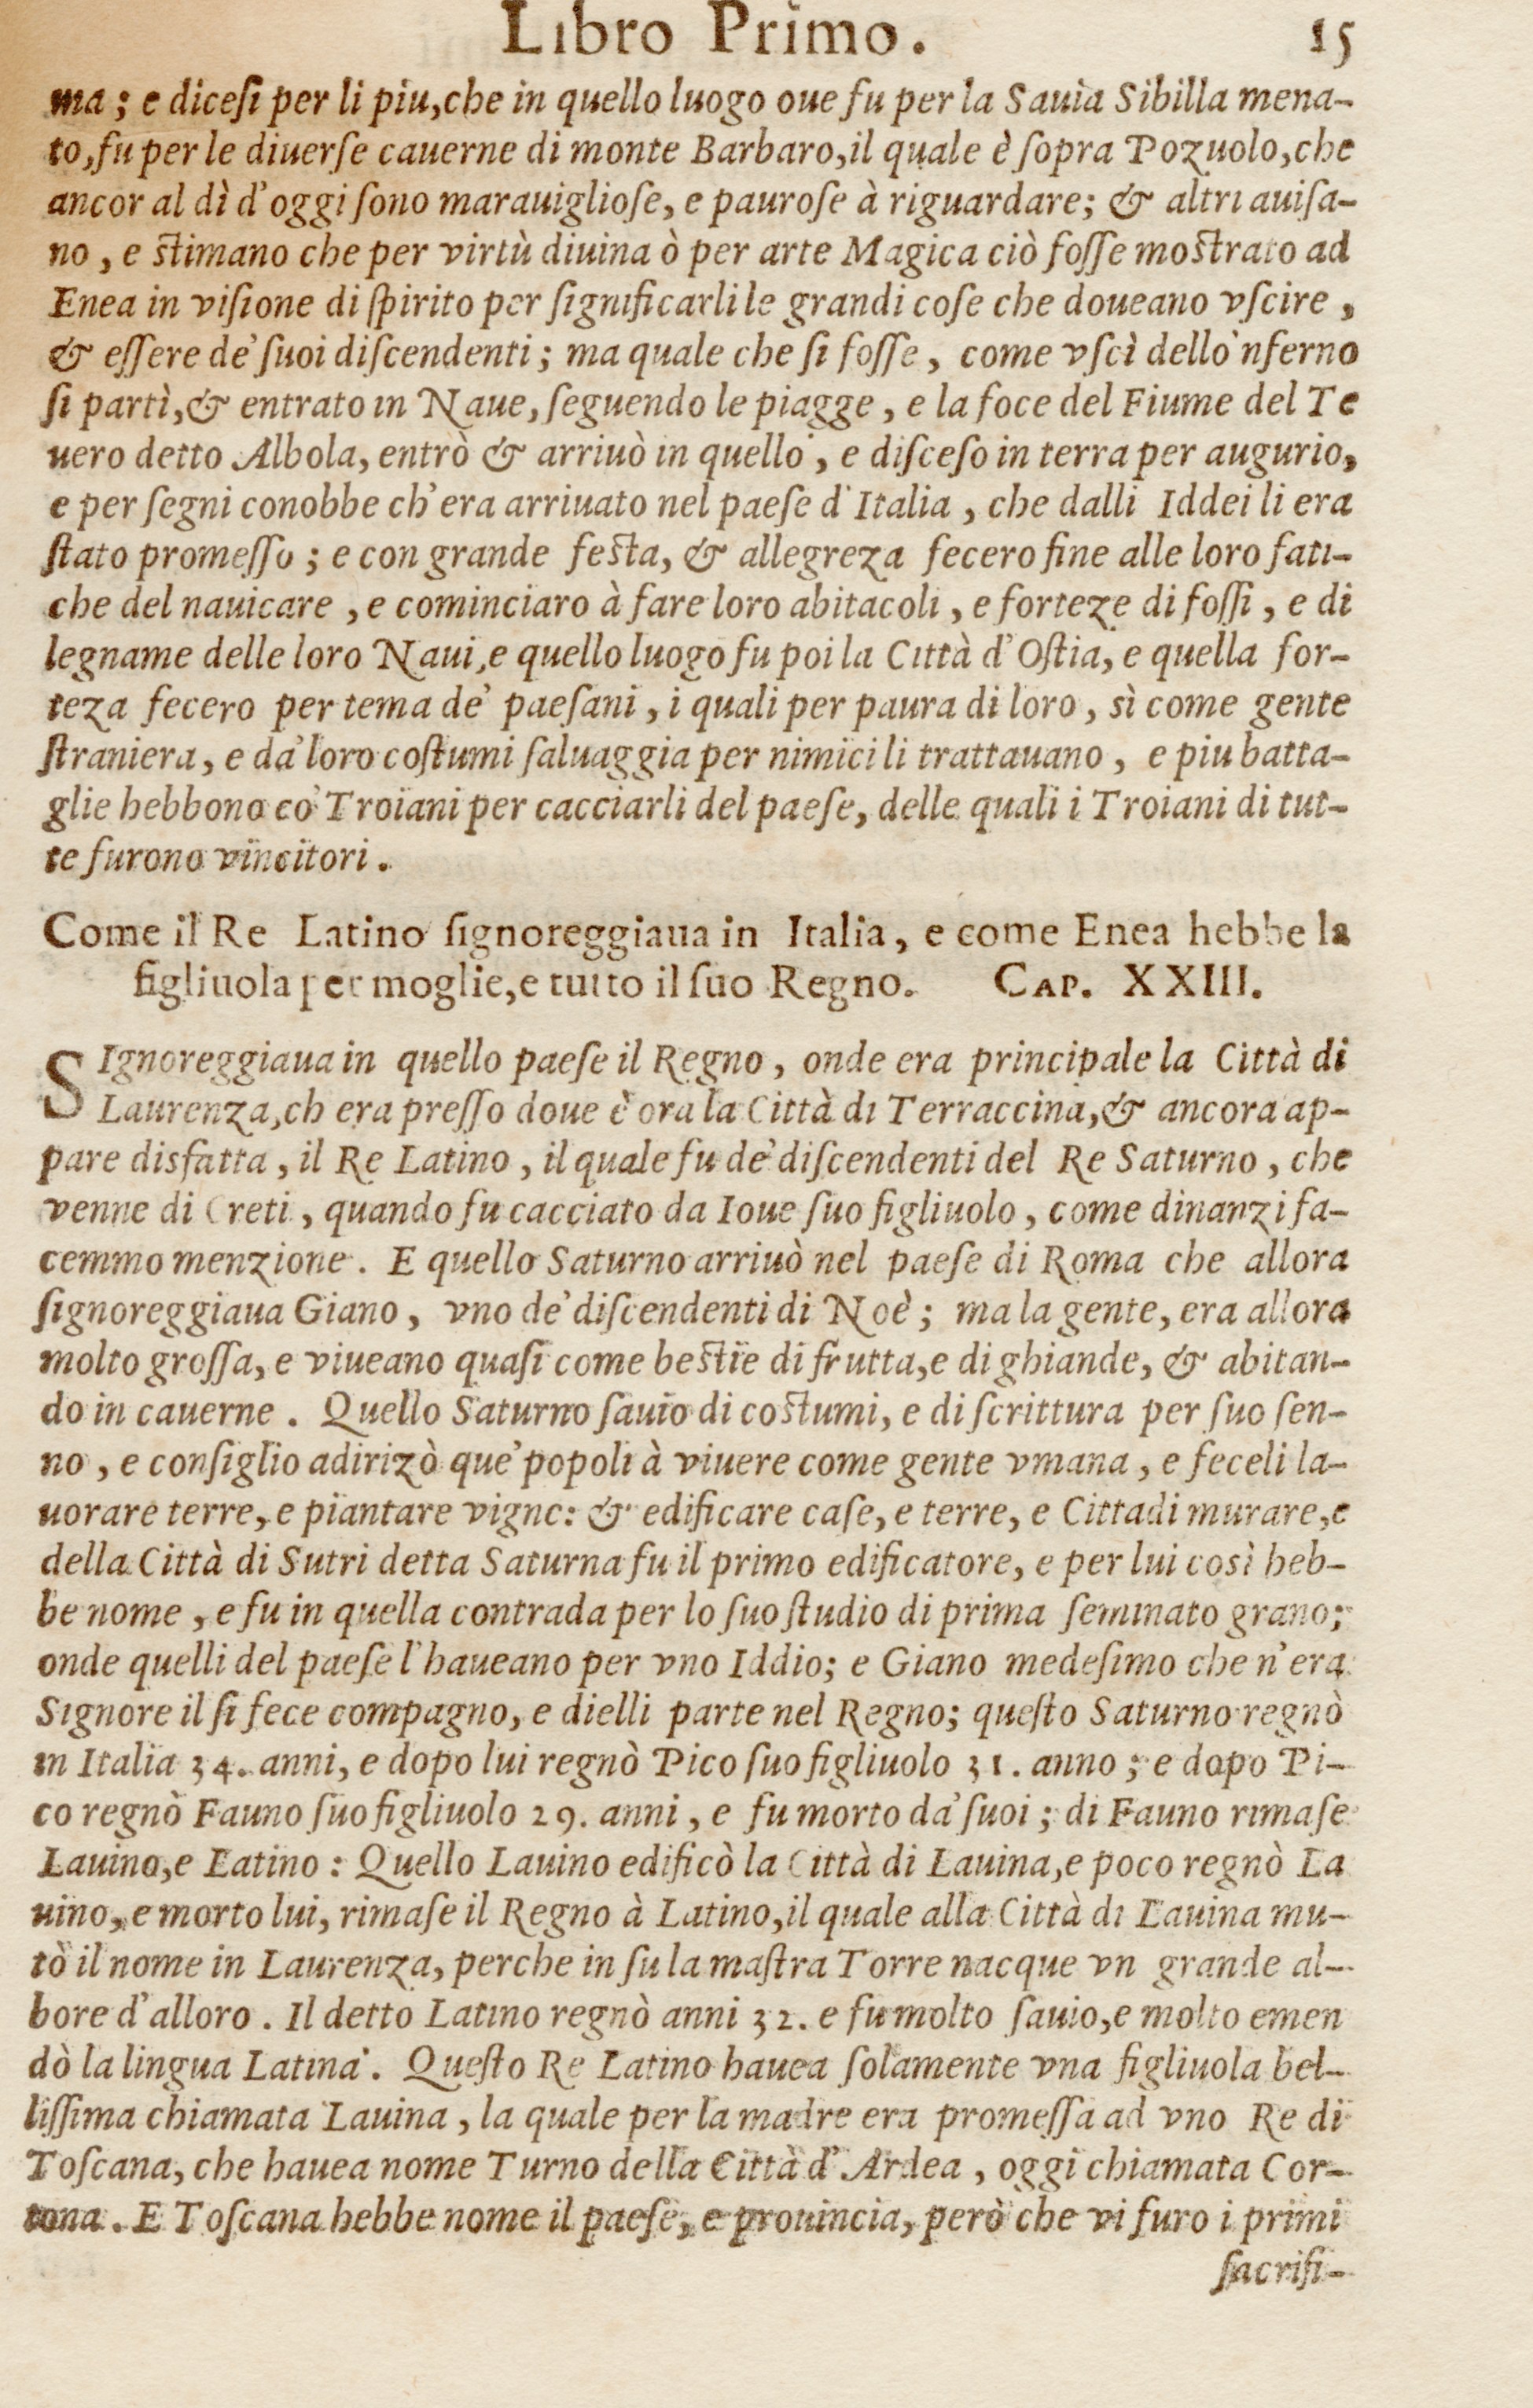 Libro Primo. 15
ma; e dicesi per li piu, che in quello luogo oue fu per la Sauia Sibilla mena-
to, fu per le diuerse cauerne di monte Barbaro, il quale è sopra Pozuolo, che
ancor al dì d'oggi sono marauigliose, e paurose à riguardare; & altri auisa-
no, e stimano che per virtù diuina ò per arte Magica ciò fosse mostrato ad
Enea in visione di spirito per significarli le grandi cose che doueano vscire,
& essere de' suoi discendenti; ma quale che si fosse, come vscì dello 'nferno
si partì, & entrato in Naue, seguendo le piagge, e la foce del Fiume del Te
uero detto Albola, entrò & arriuò in quello, e disceso in terra per augurio,
e per segni conobbe ch'era arriuato nel paese d'Italia, che dalli Iddei li era
stato promesso; e con grande festa, & allegreza fecero fine alle loro fati-
che del nauicare, e cominciaro à fare loro abitacoli, e forteze di fossi, e di
legname delle loro Naui, e quello luogo fu poi la Città d'Ostia, e quella for-
teza fecero per tema de' paesani, i quali per paura di loro, sì come gente
straniera, e da' loro costumi saluaggia per nimici li trattauano, e piu batta-
glie hebbono co' Troiani per cacciarli del paese, delle quali i Troiani di tut-
te furono vincitori.
Come il Re Latino signoreggiaua in Italia, e come Enea hebbe la
figliuola per moglie, e tutto il suo Regno. CAP. XXIII.
SIgnoreggiaua in quello paese il Regno, onde era principale la Città di
Laurenza, ch era presso doue è ora la Città di Terraccina, & ancora ap-
pare disfatta, il Re Latino, il quale fu de' discendenti del Re Saturno, che
venne di Creti, quando fu cacciato da Ioue suo figliuolo, come dinanzi fa-
cemmo menzione. E quello Saturno arriuò nel paese di Roma che allora
signoreggiaua Giano, vno de' discendenti di Noè; ma la gente, era allora
molto grossa, e viueano quasi come bestie di frutta, e di ghiande, & abitan-
do in cauerne. Quello Saturno sauio di costumi, e di scrittura per suo sen-
no, e consiglio adirizò que' popoli à viuere come gente vmana, e feceli la-
uorare terre, e piantare vigne: & edificare case, e terre, e Cittadi murare, e
della Città di Sutri detta Saturna fu il primo edificatore, e per lui così heb-
be nome, e fu in quella contrada per lo suo studio di prima seminato grano;
onde quelli del paese l'haueano per vno Iddio; e Giano medesimo che n'era
Signore il si fece compagno, e dielli parte nel Regno; questo Saturno regnò
in Italia 34. anni, e dopo lui regnò Pico suo figliuolo 31. anno; e dopo Pi-
co regnò Fauno suo figliuolo 29. anni, e fu morto da' suoi; di Fauno rimase
Lauino, e Latino: Quello Lauino edificò la Città di Lauina, e poco regnò La
uino, e morto lui, rimase il Regno à Latino, il quale alla Città di Lauina mu-
tò il nome in Laurenza, perche in su la mastra Torre nacque vn grande al-
bore d'alloro. Il detto Latino regnò anni 32. e fu molto sauio, e molto emen
dò la lingua Latina. Questo Re Latino hauea solamente vna figliuola bel-
lissima chiamata Lauina, la quale per la madre era promessa ad vno Re di
Toscana, che hauea nome Turno della Città d'Ardea, oggi chiamata Cor-
tona. E Toscana hebbe nome il paese, e prouincia, però che vi furo i primi
sacrifi-